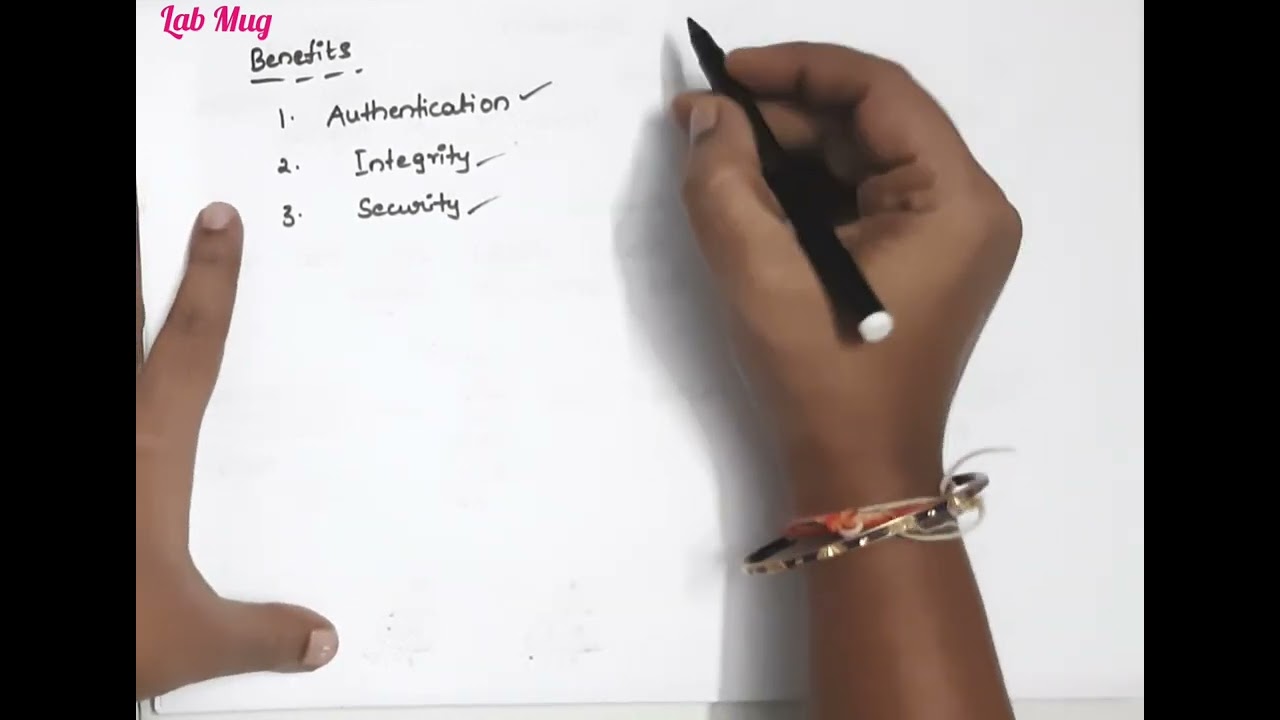 Lab Mug
Benefits
1. Authentication ✓
2. Integrity ✓
3. Security ✓